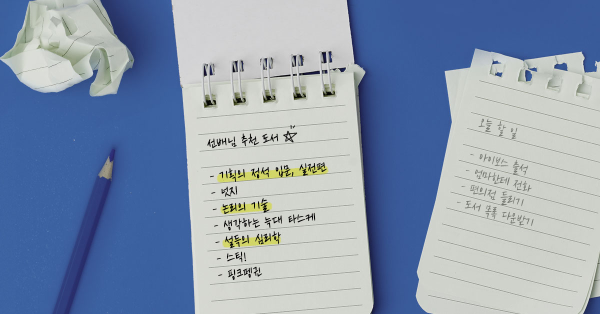 선배님 추천 도서 ☆
- 기획의 정석 입문, 실전편
- 넛지
- 논리의 기술
- 생각하는 늑대 타스케
- 설득의 심리학
- 스틱!
- 핑크펭귄
오늘 할 일
- 아이보스 출석
- 엄마한테 전화
- 편의점 들리기
- 도서 목록 다운받기